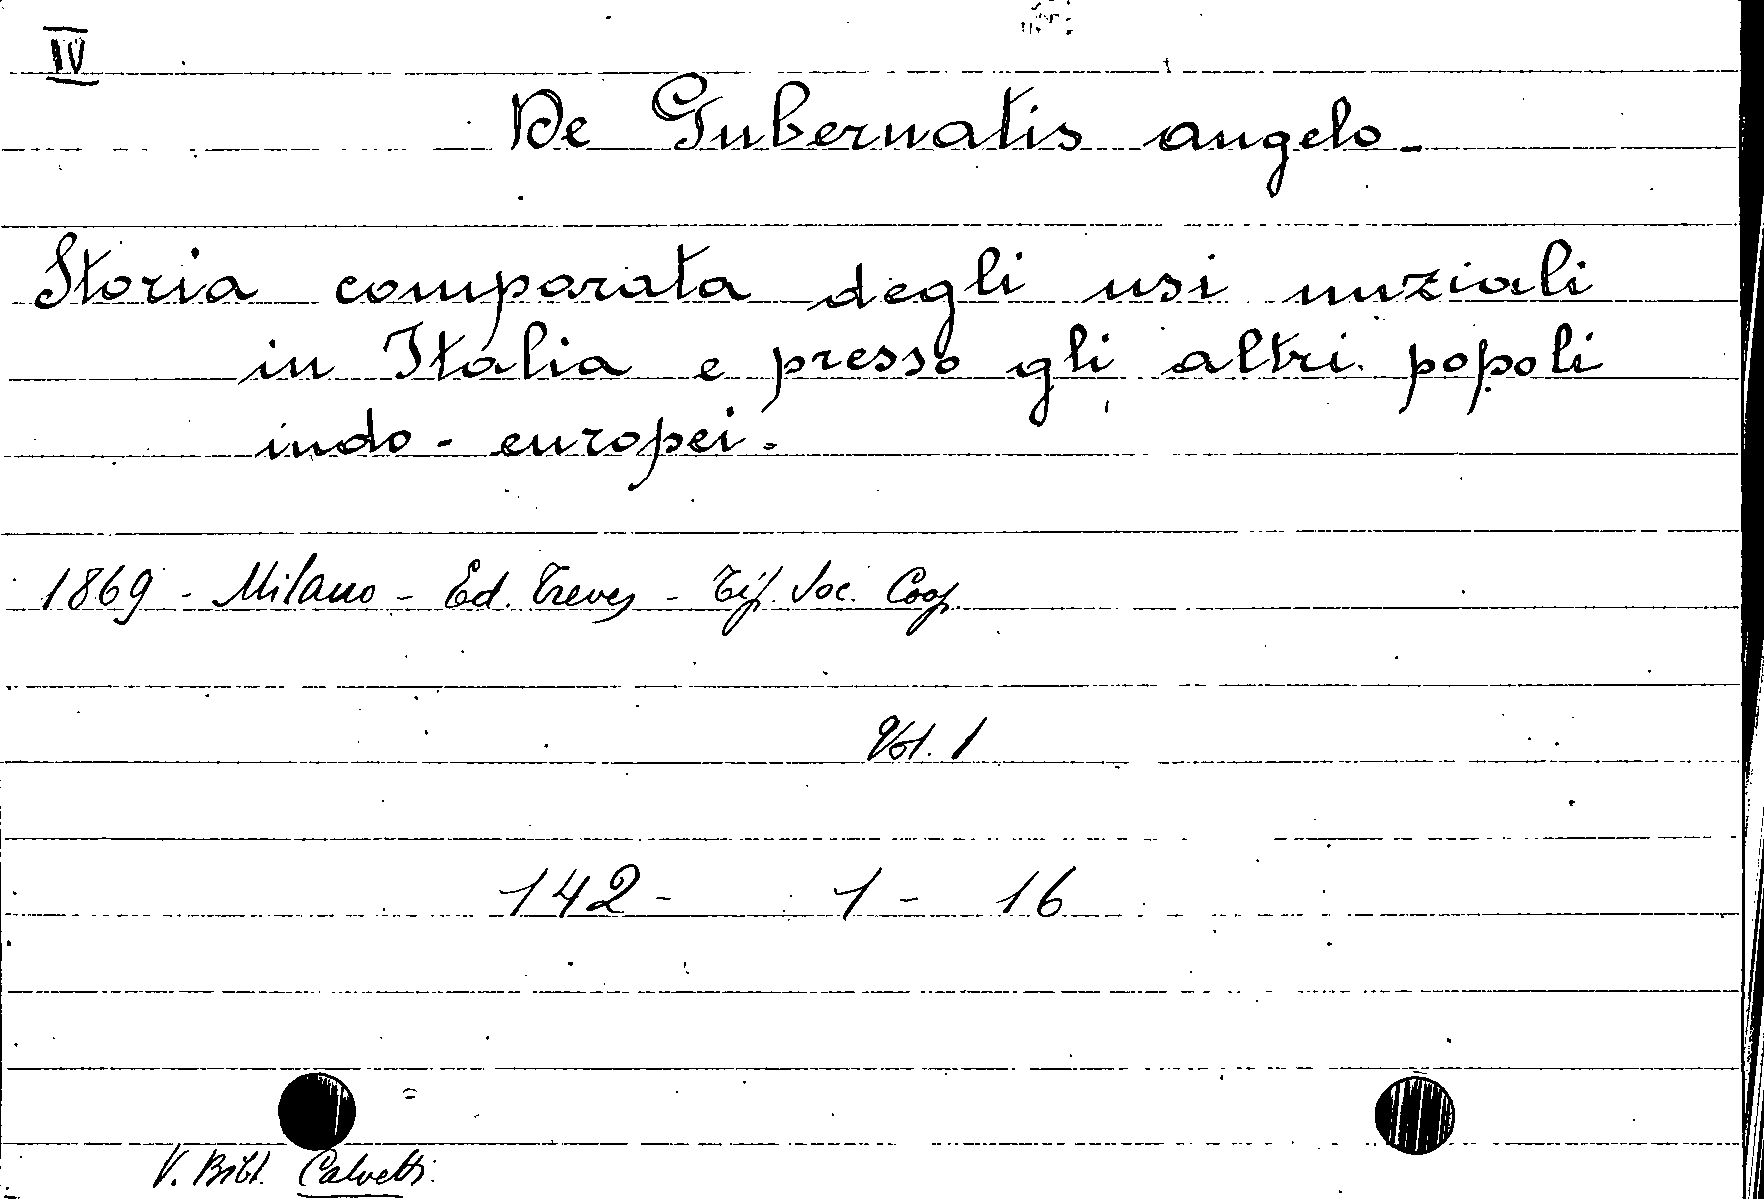 IV
De Gubernatis Angelo -
Storia comparata degli usi nuziali
in Italia e presso gli altri popoli
indo - europei.
1869 - Milano - Ed. Treves - Tip. Soc. Coop.
Vol. 1
142 - 1 - 16
V. Bibl. Calvetti